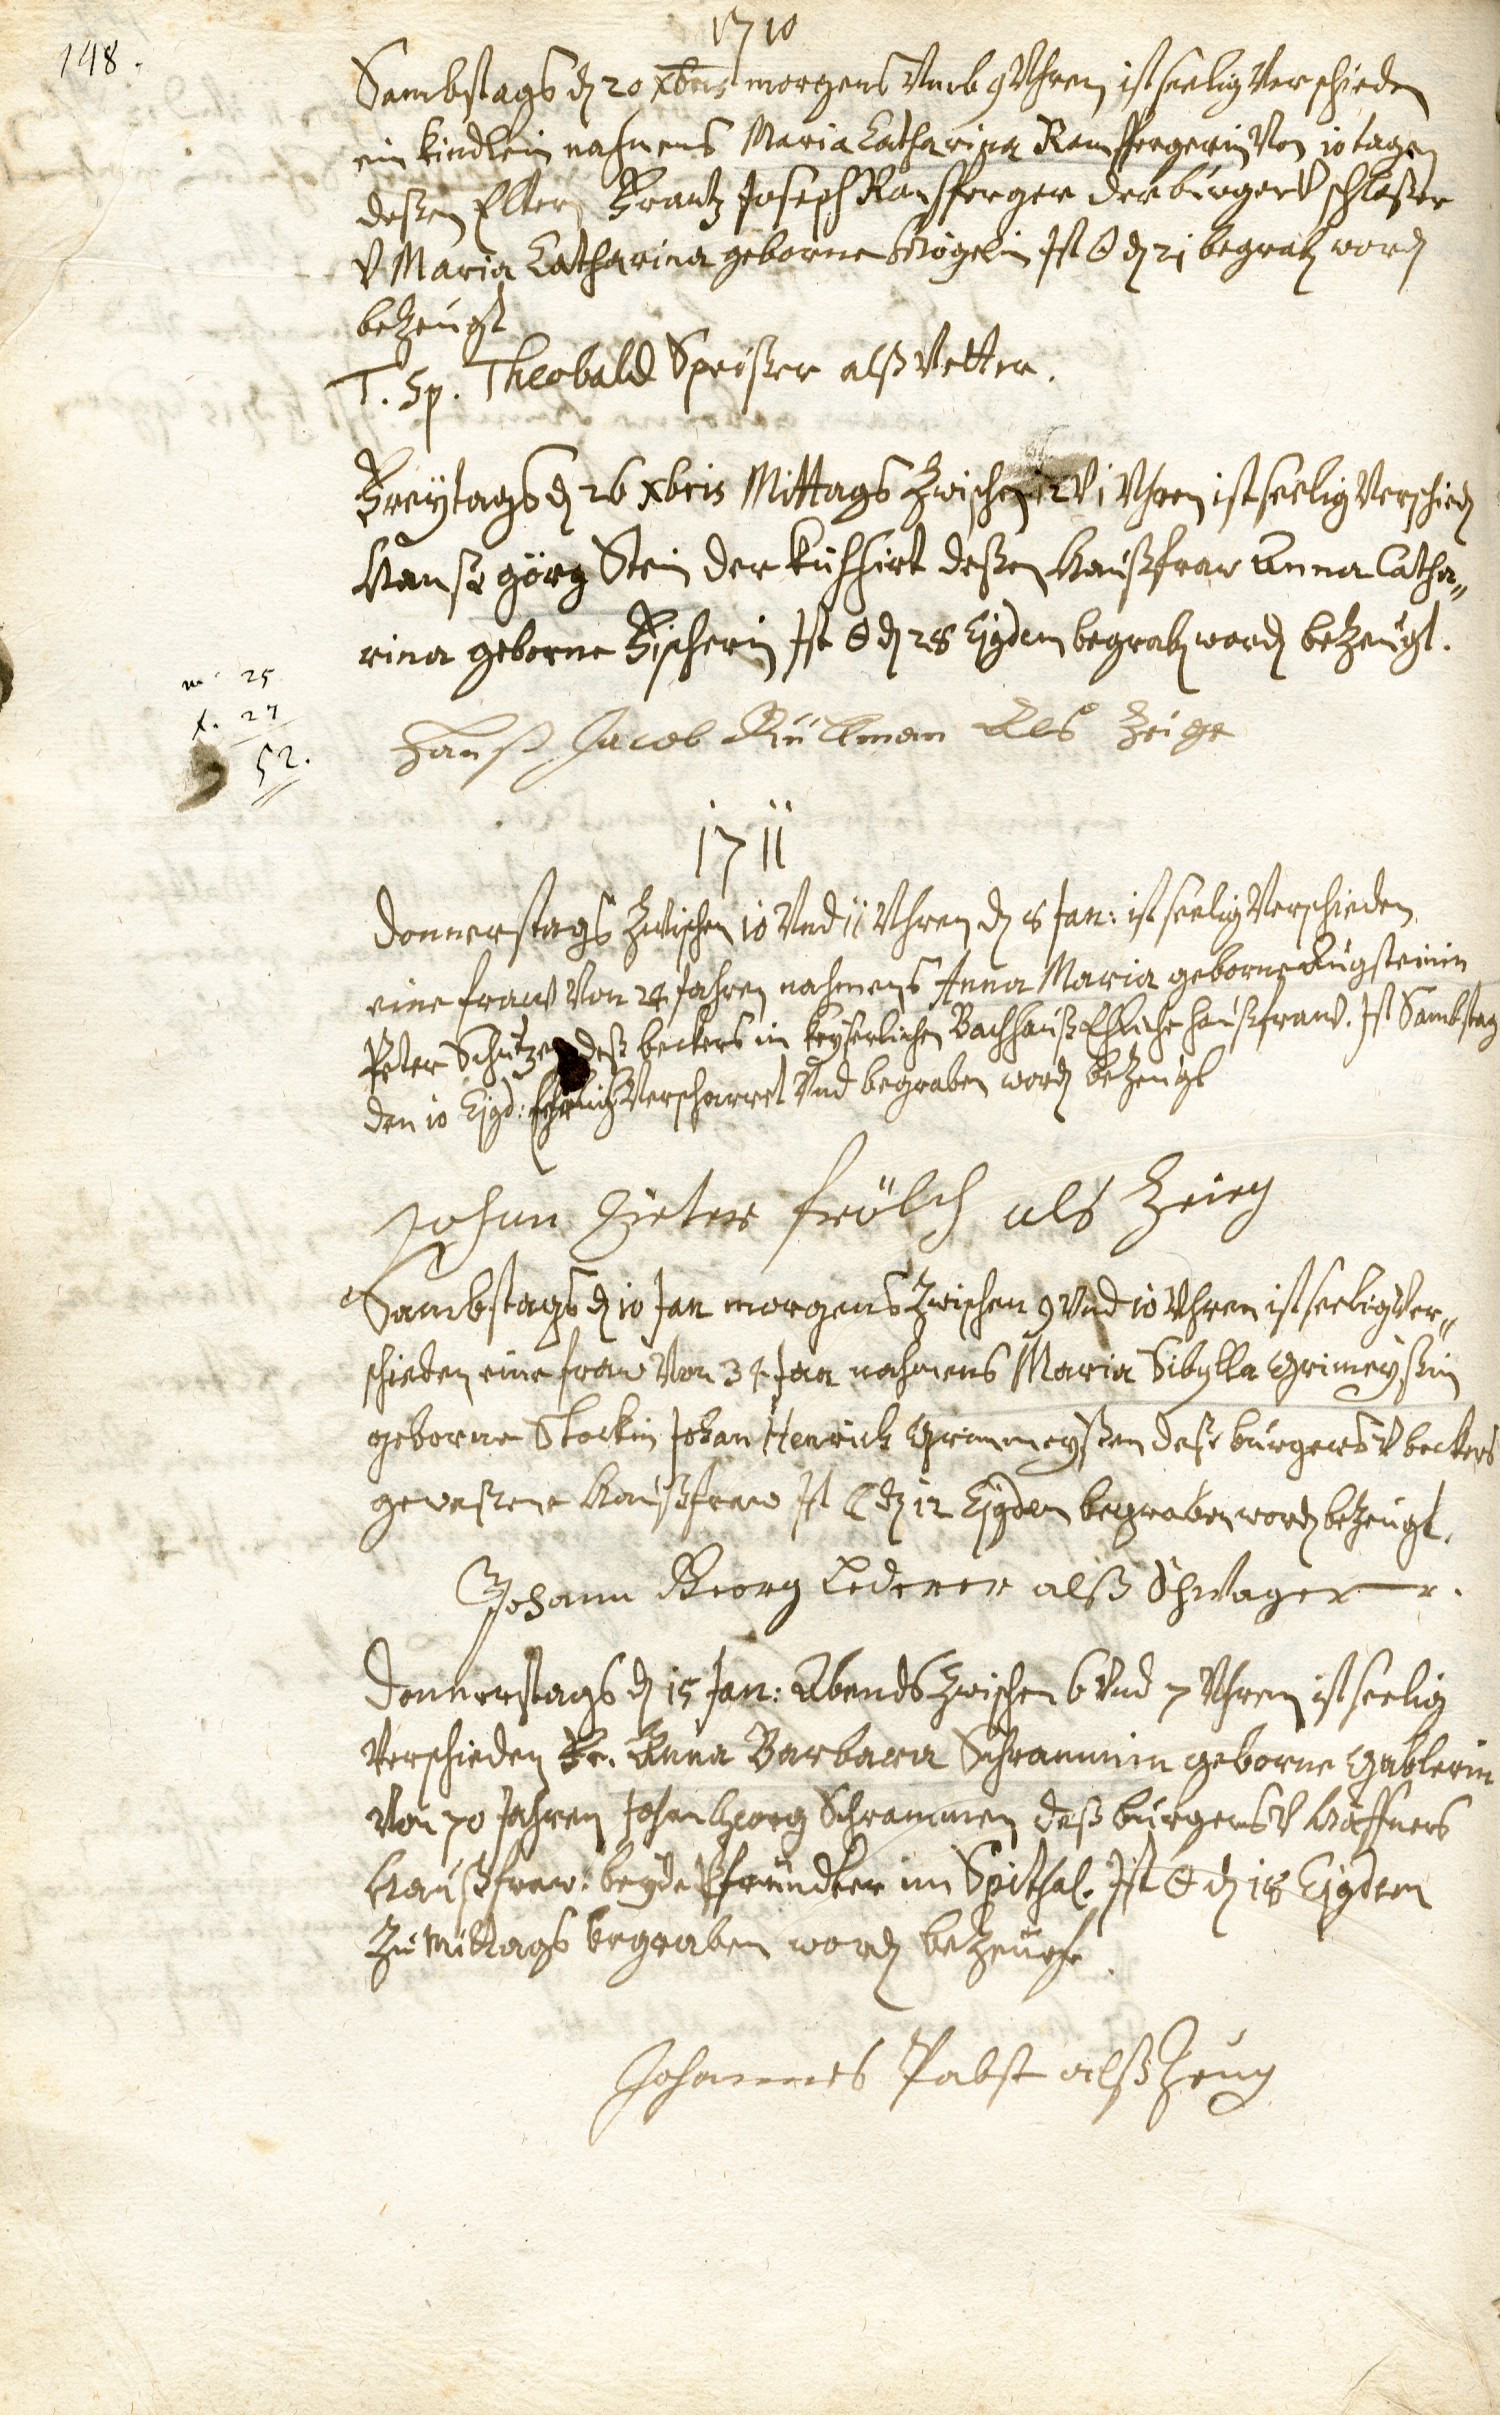 148.
1710
Sambstags d 20 xbris morgens Umb 9 Uhren ist seelig Verschieden
ein kindlein nahmens Maria Catharina Von 10 tagen
deßen Eltern Frantz Joseph der burger V schloßer
V Maria Catharina geborne Ist ☉ d 21 begrab word
bezeugt
T. Sp. Theobald Speißer alß Vetter.
Freytags d 26 xbris Mittags Zwischen 12 V 1 Uhren ist seelig Verschied
Hanß Görg Stein der kuhhirt deßen Haußfraw Anna Catha„
rina geborne Fischerin Ist ☉ d 28 Ejqdem begrab word bezeugt.
m. 25
f. 27
52.
Hanß Jacob Als Zeüge
1711
Donnerstags Zwischen 10 Und 11 Uhren d 8 Jan: ist seelig Verschieden
eine fraw Von 24 Jahren nahmens Anna Maria geborne Augsteinin
Peter Schützen deß beckers im keyserlichen Bachhauß Ehliche haußfraw. Ist Sambstag
den 10 Ejqd: Verscharret Und begraben word bezeugt
Johan Pieter frölich als Zeieg
Sambstags d 10 Jan morgens Zwischen 9 Und 10 Uhren ist seelig Ver„
schieden eine fraw Von 34 Jaa nahmens Maria Sibylla Grimeyßin
geborne Stockin Johan Henrich Grimmeyßen deß burgers V beckers
geweßene Haußfraw Ist ☾ d 12 Ejqdem begraben word bezeugt.
Johann Georg Lederer alß Schwager
Donnerstags d 15 Jan: Abends Zwischen 6 Und 7 Uhren ist seelig
Verschieden Fr. Anna Barbara Schrammin geborne Gablerin
Von 70 Jahren Johan Georg Schrammen deß burgers V Haffners
Haußfraw: beyde Pfründter im Spithal. Ist ☉ d 18 Ejqdem
Zu Mittags begraben word bezeugt
Johannes Pabst alß Zeug